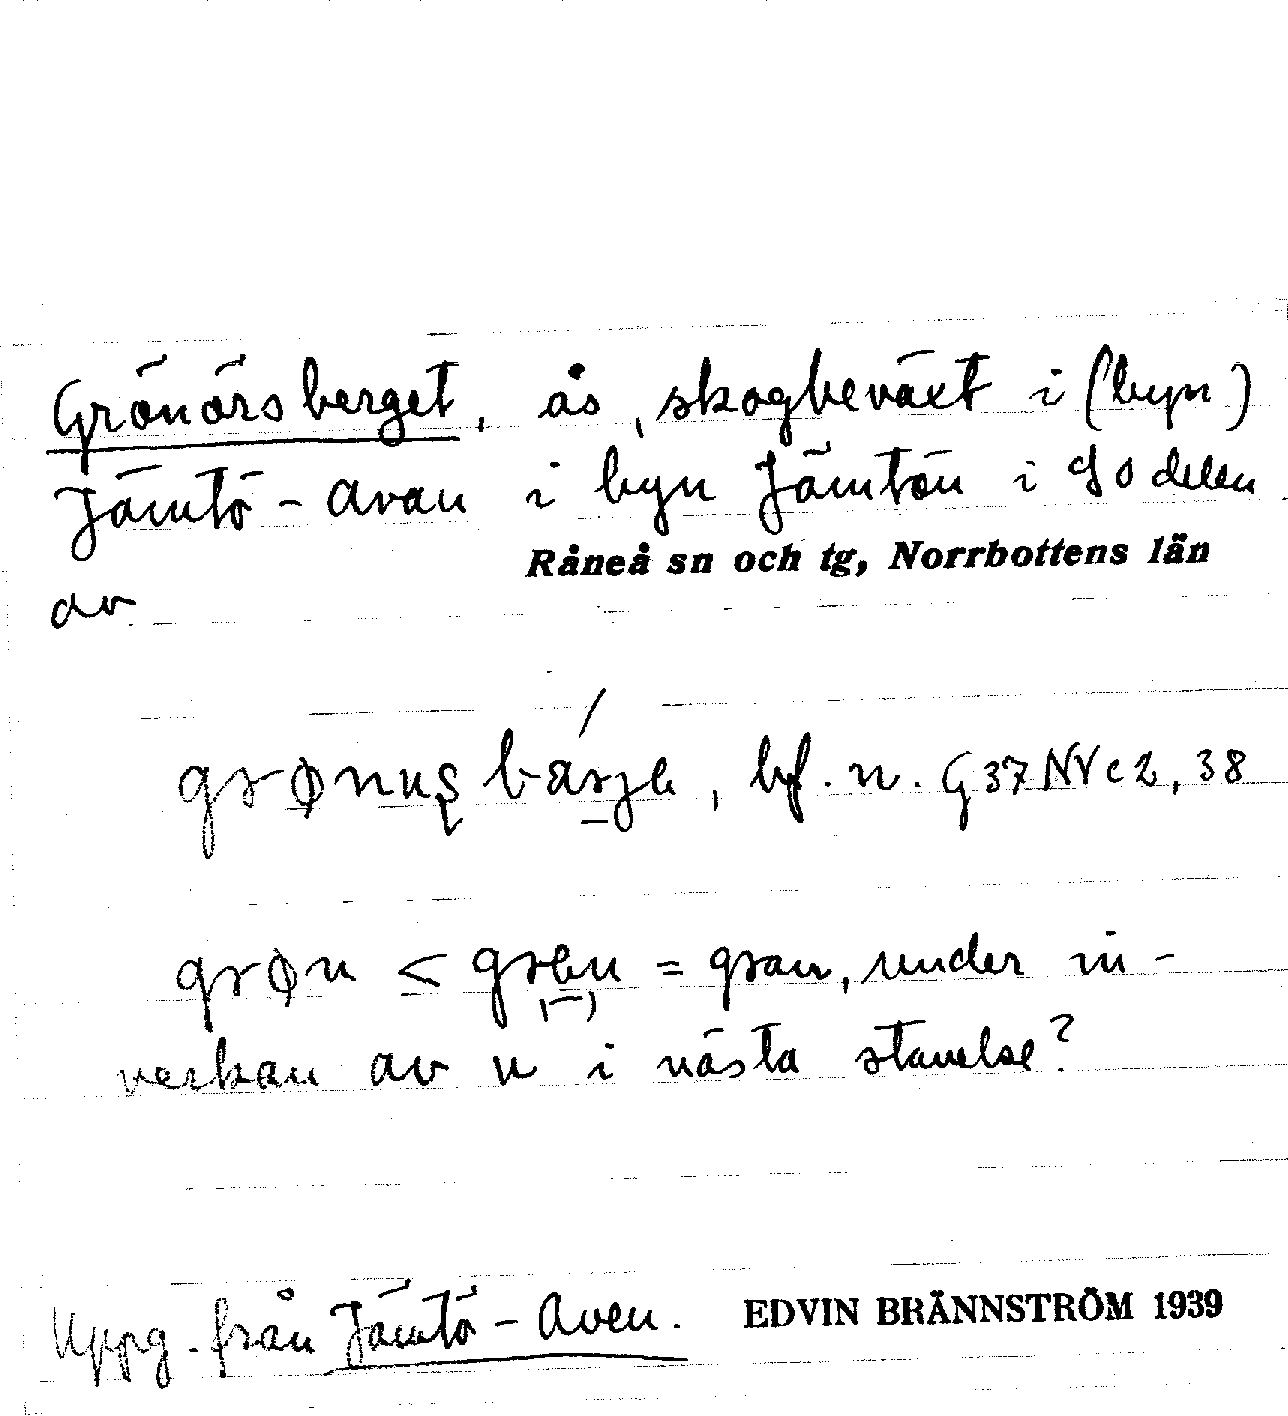 Grönörsberget, ås, skogbeväxt i (byn)
Jämtö-Avan i byn Jämtön i SO delen
Råneå sn och tg, Norrbottens län
av
bf. n. G37NVc2, 38
= gran, under in-
verkan av u i nästa stavelse?
Uppg. från Jämtö-Aven. EDVIN BRÄNNSTRÖM 1939